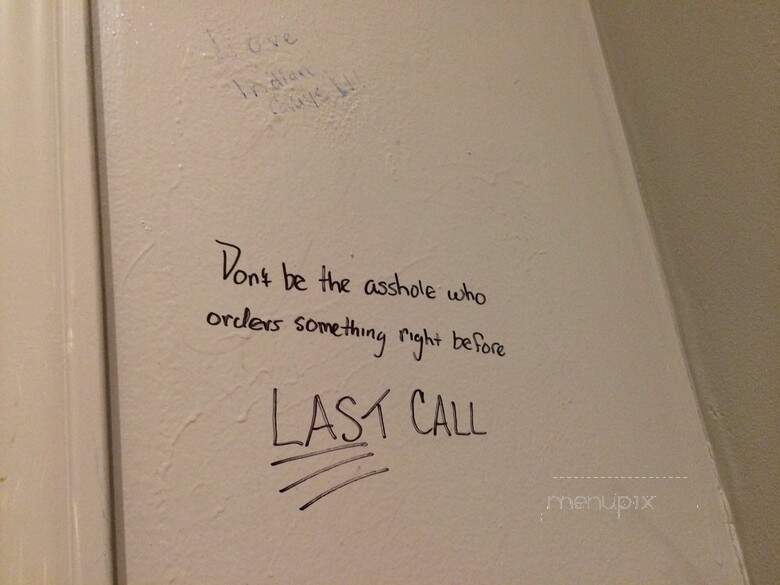 I love
Indian
Guys !!!
Don't be the asshole who
orders something right before
LAST CALL
menupix